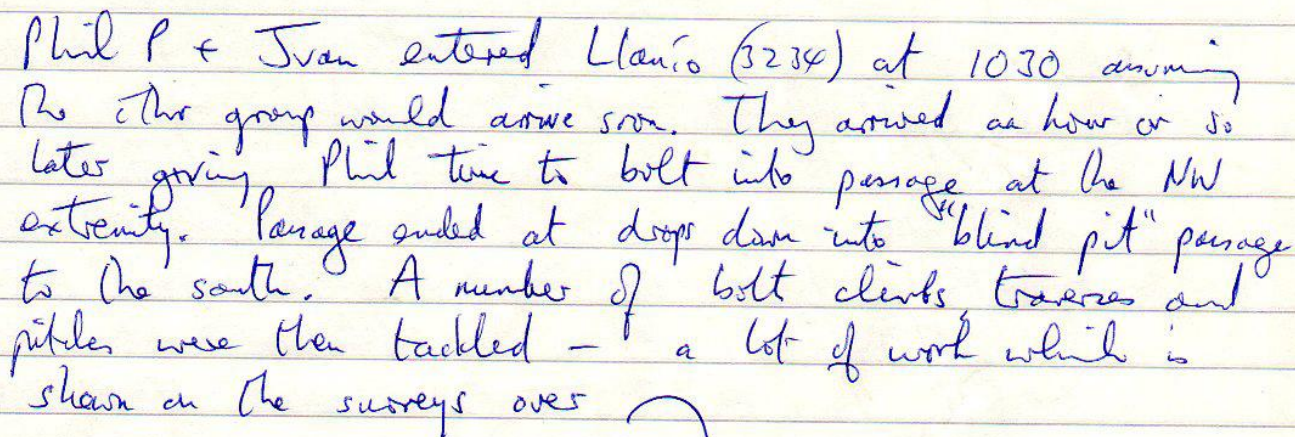 Phil P + Juan entered Llanío (3234) at 1030 assuming
the other group would arrive soon. They arrived an hour or so
later giving Phil time to bolt into passage at the NW
extremity. Passage ended at drops down into "blind pit" passage
to the south. A number of bolt climbs, traverses and
pitches were then tackled - a lot of work which is
shown on the surveys over